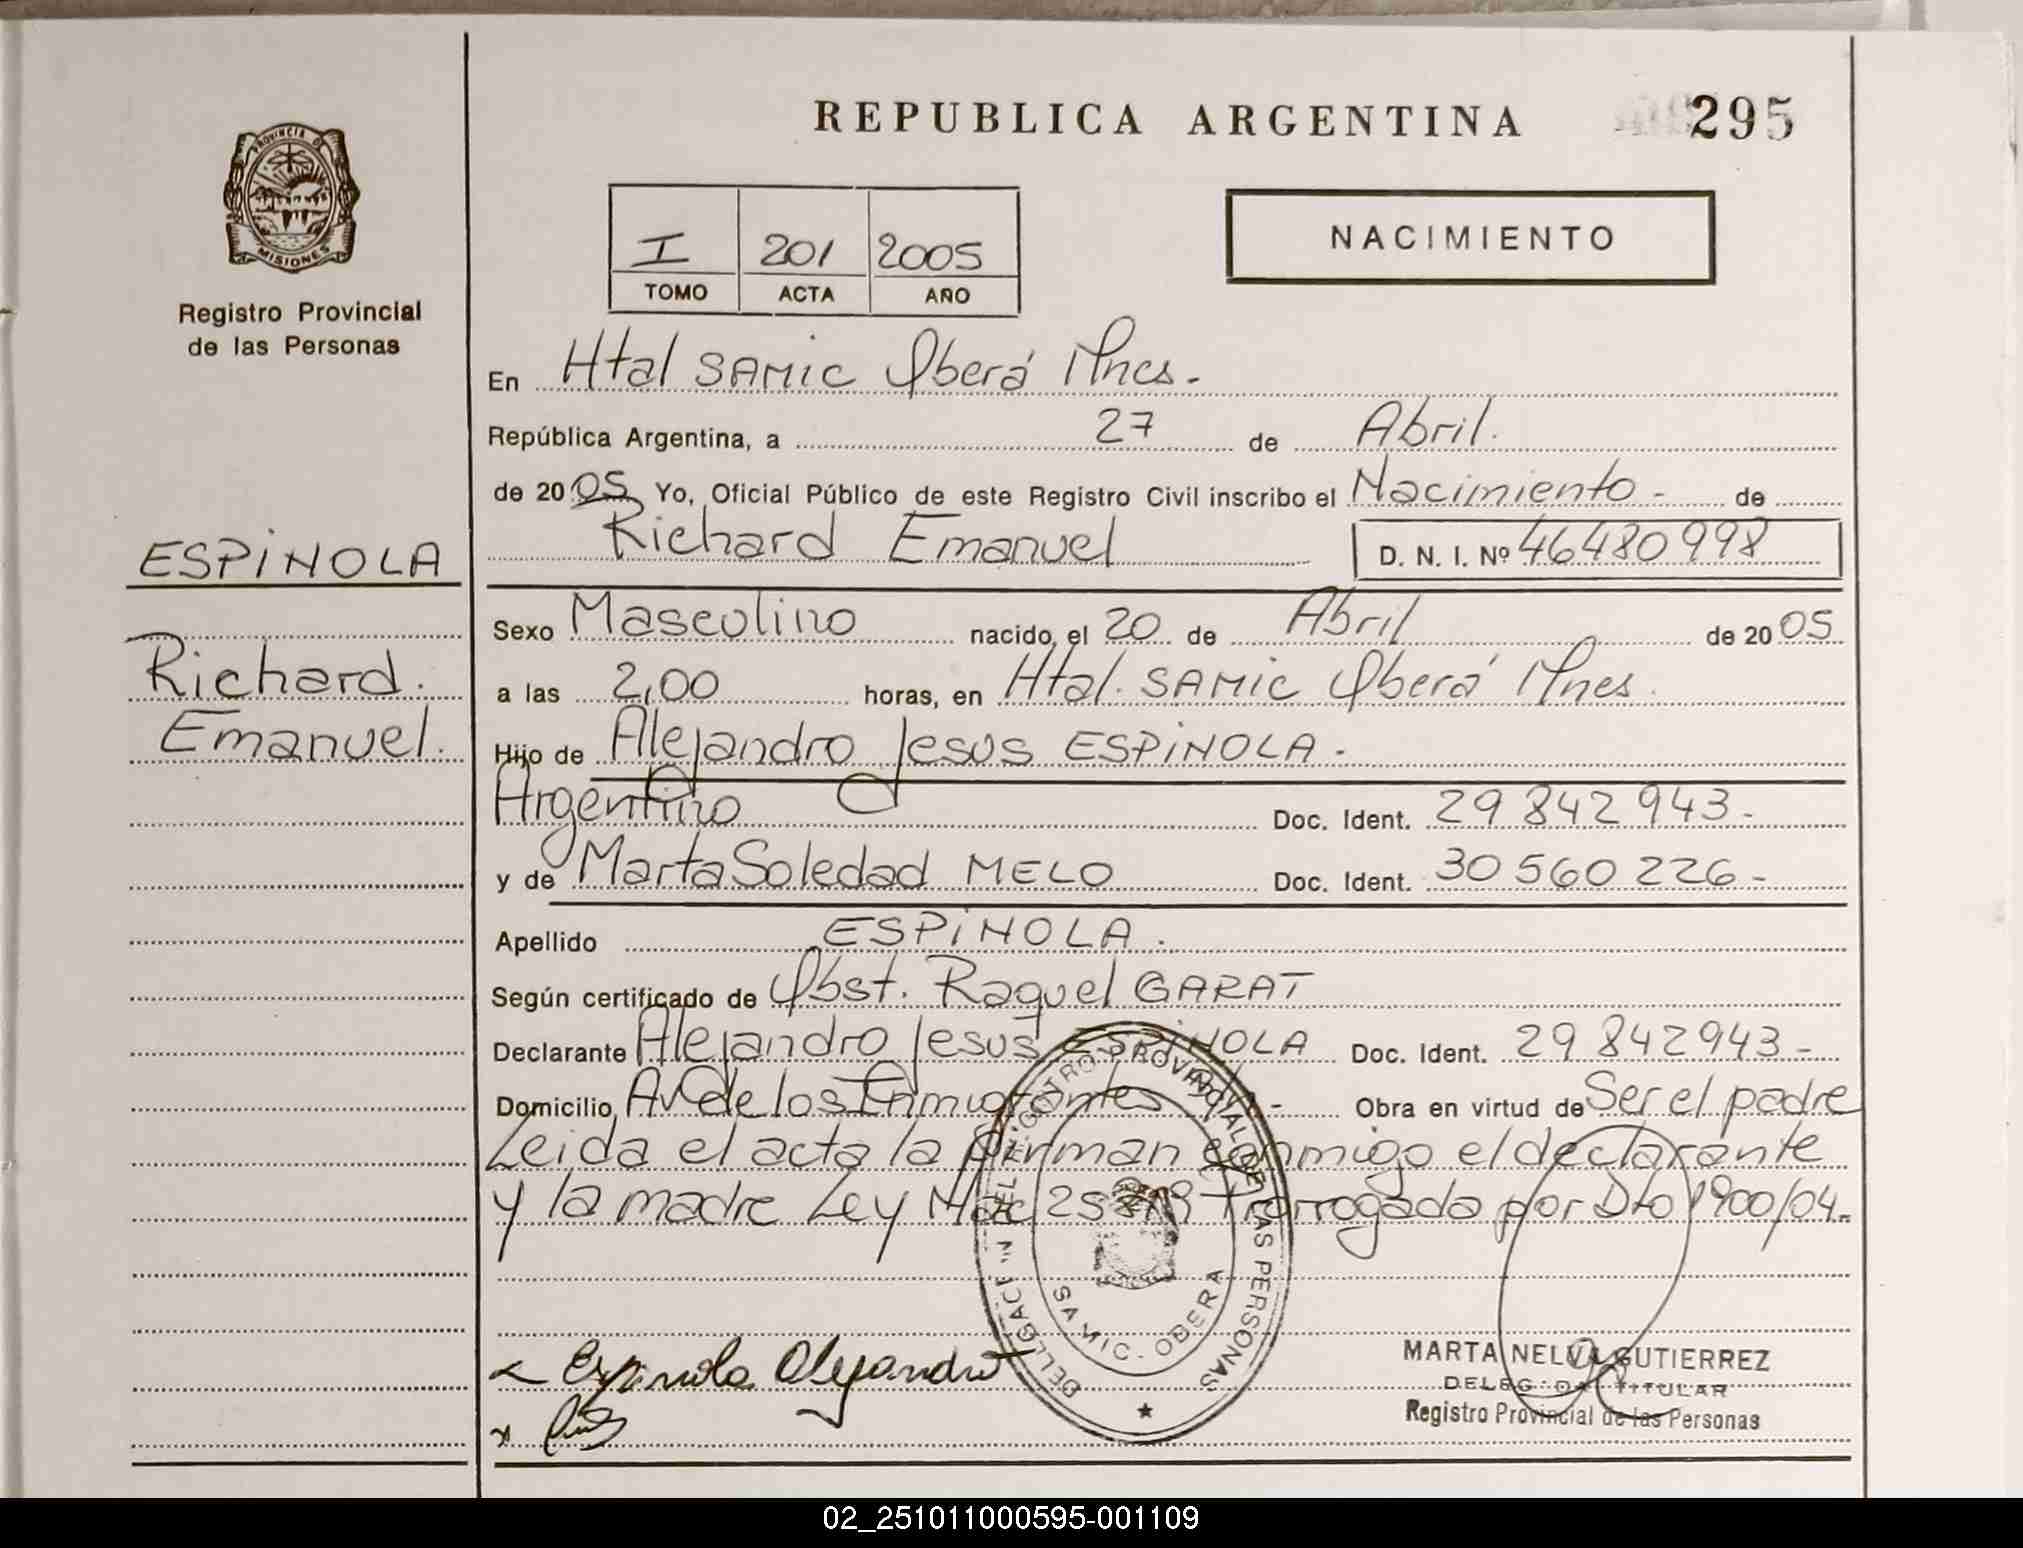 REPUBLICA ARGENTINA
295
PROVINCIA DE
MISIONES
Registro Provincial
de las Personas
I 201 2005
TOMO ACTA AÑO
NACIMIENTO
En Htal SAMIC Oberá Mnes.
República Argentina, a 27 de Abril.
de 2005 Yo, Oficial Público de este Registro Civil inscribo el Nacimiento - de
Richard Emanuel D. N. I. Nº 46480998
ESPINOLA
Richard.
Emanuel.
Sexo Masculino nacido, el 20 de Abril de 2005
a las 2,00 horas, en Htal. SAMIC Oberá Mnes.
Hijo de Alejandro Jesus ESPINOLA.
Argentino Doc. Ident. 29 842 943-
y de Marta Soledad MELO Doc. Ident. 30 560 226-
Apellido ESPINOLA.
Según certificado de Obst. Raquel GARAT
Declarante Alejandro Jesus ESPINOLA Doc. Ident. 29 842943-
Domicilio Av de los Inmigrantes Obra en virtud de Ser el padre
Leida el acta la firman conmigo el declarante
y la madre Ley Nac 25819 Prorrogada por Dto 1900/04.
REGISTRO PROVINCIAL DE LAS PERSONAS
SAMIC. OBERA
Espinola Alejandro
MARTA NELVA GUTIERREZ
DELEGADA TITULAR
Registro Provincial de las Personas
02_251011000595-001109